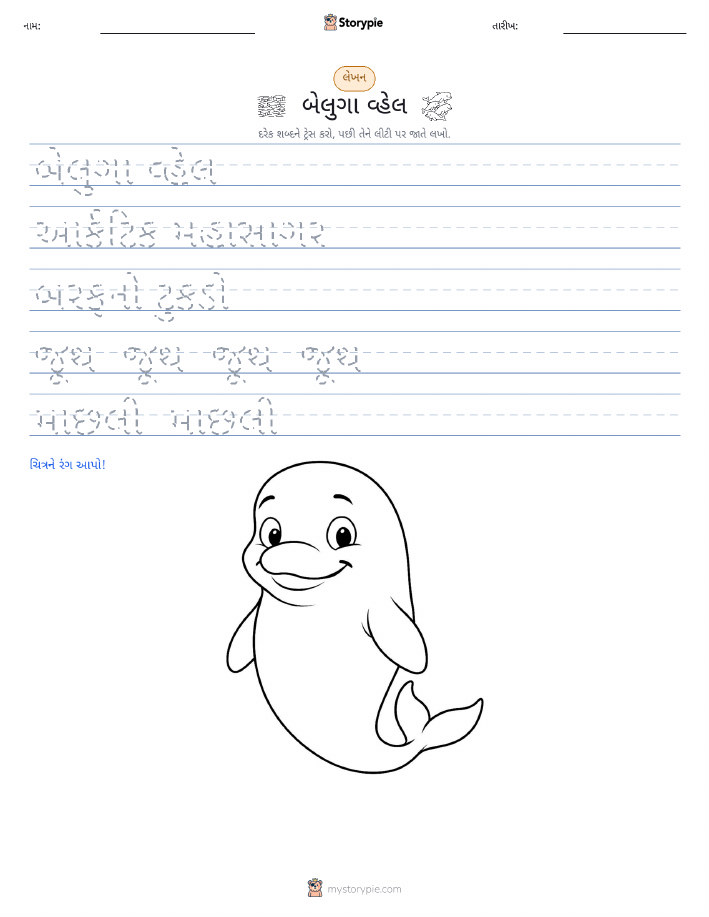 નામ:
Storypie
તારીખ:
લેખન
બેલુગા વ્હેલ
દરેક શબ્દને ટ્રેસ કરો, પછી તેને લીટી પર જાતે લખો.
બેલુગા વ્હેલ
આર્કટિક મહાસાગર
બરફનો ટુકડો
જૂથ જૂથ જૂથ જૂથ
માછલી માછલી
ચિત્રને રંગ આપો!
mystorypie.com